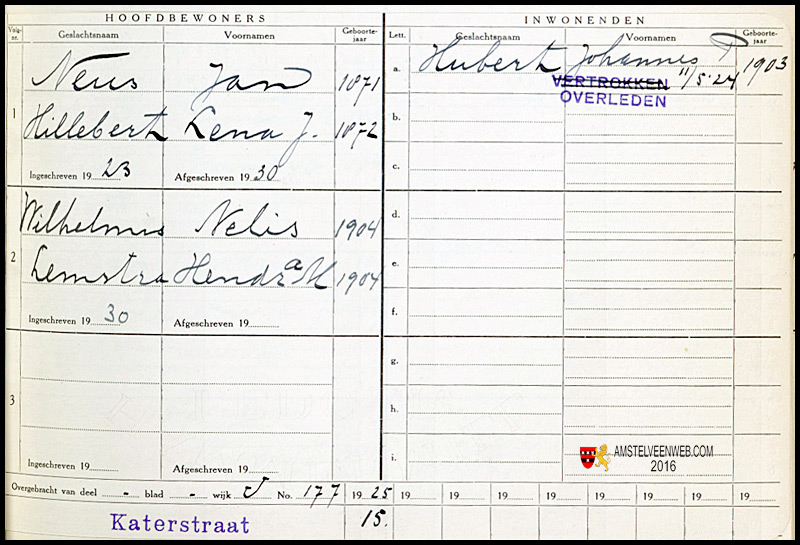 HOOFDBEWONERS
Volg-nr. Geslachtsnaam Voornamen Geboorte-jaar
1
Neus Jan 1871
Hillebert Lena J. 1872
Ingeschreven 19 23 Afgeschreven 19 30
2
Wilhelmus Nelis 1904
Lemstra Hendr a M 1904
Ingeschreven 19 30 Afgeschreven 19
3
Ingeschreven 19 Afgeschreven 19
INWONENDEN
Lett. Geslachtsnaam Voornamen Geboorte-jaar
a. Hubert Johannes P 1903
VERTROKKEN 11/5·24
OVERLEDEN
b.
c.
d.
e.
f.
g.
h.
i.
AMSTELVEENWEB.COM
2016
Overgebracht van deel - blad - wijk J No. 177 19 25 19 19 19 19 19 19 19 19
Katerstraat 15.